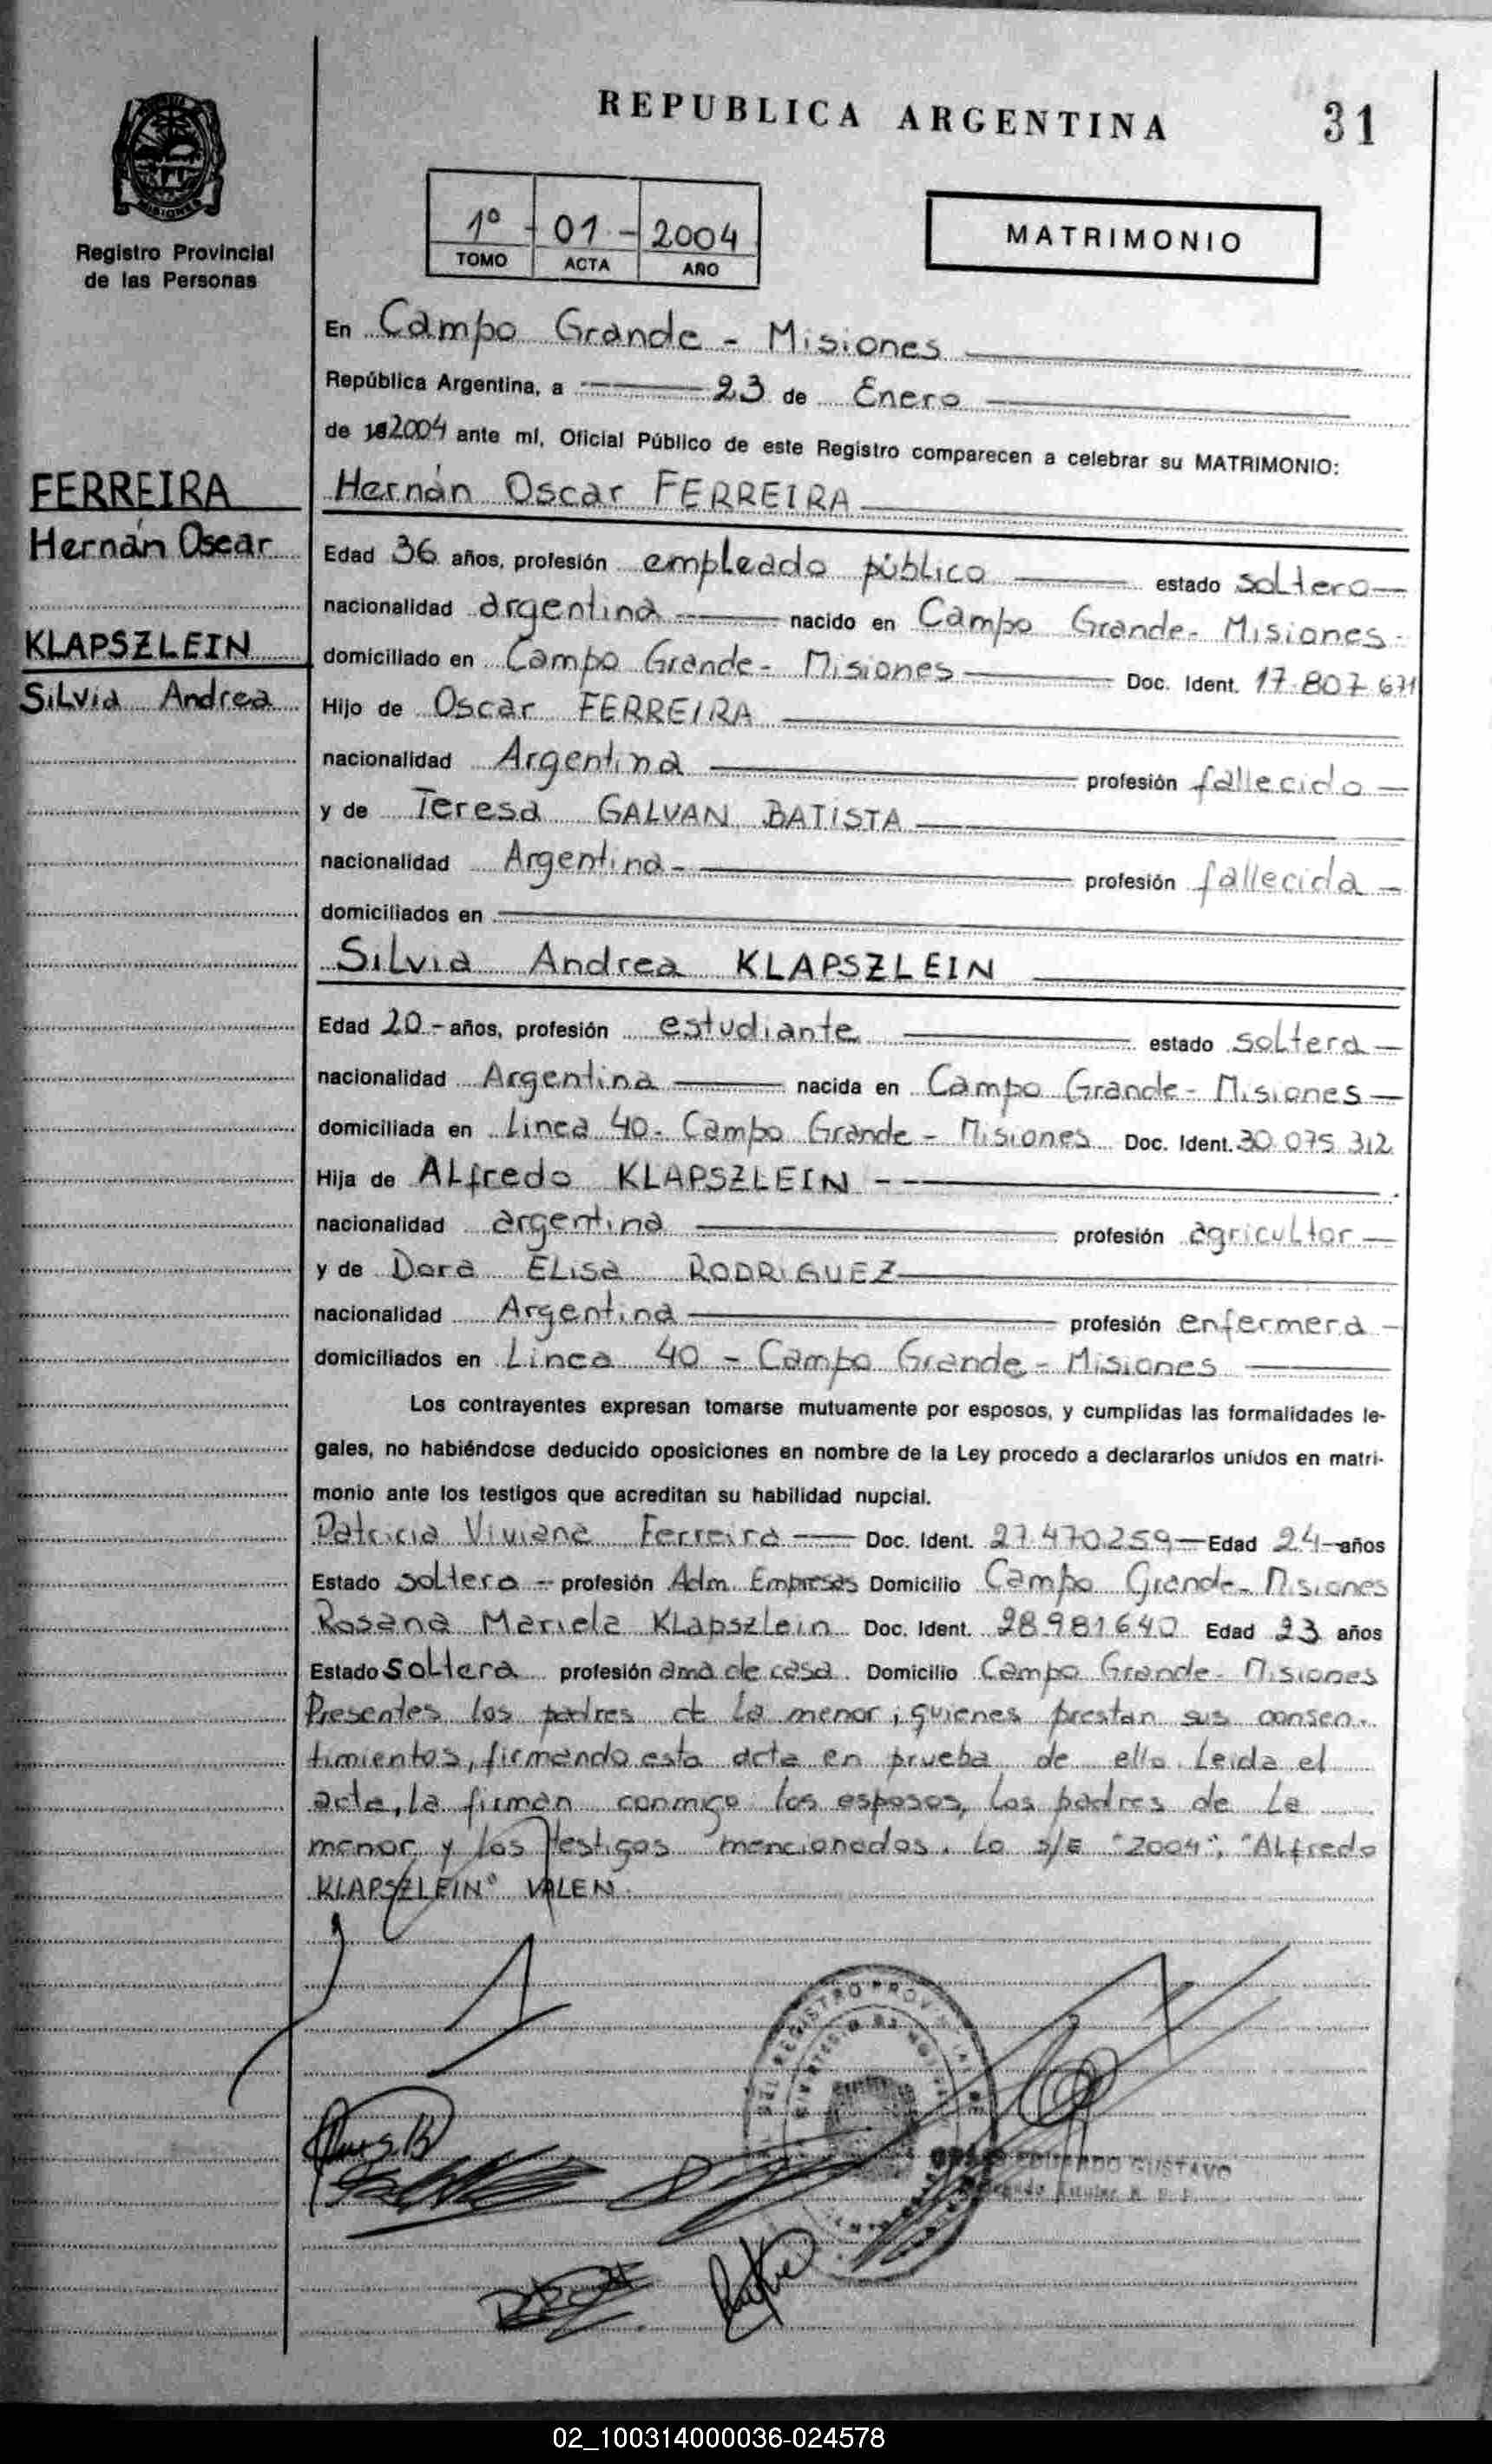 REPUBLICA ARGENTINA
31
MISIONES
Registro Provincial
de las Personas
1º - 01 - 2004
TOMO ACTA AÑO
MATRIMONIO
En Campo Grande - Misiones
República Argentina, a 23 de Enero
de 2004 ante mí, Oficial Público de este Registro comparecen a celebrar su MATRIMONIO:
FERREIRA
Hernán Oscar
KLAPSZLEIN
Silvia Andrea
Hernán Oscar FERREIRA
Edad 36 años, profesión empleado público estado soltero
nacionalidad argentina nacido en Campo Grande - Misiones
domiciliado en Campo Grande - Misiones Doc. Ident. 17.807.671
Hijo de Oscar FERREIRA
nacionalidad Argentina profesión fallecido
y de Teresa GALVAN BATISTA
nacionalidad Argentina - profesión fallecida
domiciliados en
Silvia Andrea KLAPSZLEIN
Edad 20 - años, profesión estudiante estado soltera
nacionalidad Argentina nacida en Campo Grande - Misiones
domiciliada en Linea 40 - Campo Grande - Misiones Doc. Ident. 30.075.312
Hija de Alfredo KLAPSZLEIN
nacionalidad argentina profesión agricultor
y de Dora Elisa RODRIGUEZ
nacionalidad Argentina profesión enfermera
domiciliados en Linea 40 - Campo Grande - Misiones
Los contrayentes expresan tomarse mutuamente por esposos, y cumplidas las formalidades le-
gales, no habiéndose deducido oposiciones en nombre de la Ley procedo a declararlos unidos en matri-
monio ante los testigos que acreditan su habilidad nupcial.
Patricia Viviana Ferreira Doc. Ident. 27.470.259 Edad 24 años
Estado soltera - profesión Adm. Empresas Domicilio Campo Grande - Misiones
Rosana Mariela Klapszlein Doc. Ident. 28.981.640 Edad 23 años
Estado soltera profesión ama de casa. Domicilio Campo Grande - Misiones
Presentes los padres de la menor; quienes prestan sus consen-
timientos, firmando esta acta en prueba de ello. Leida el
acta, la firman conmigo los esposos, los padres de la
menor y los testigos mencionados. Lo s/E "2004"; "Alfredo
KLAPSZLEIN" VALEN.
EDUARDO GUSTAVO
02_100314000036-024578